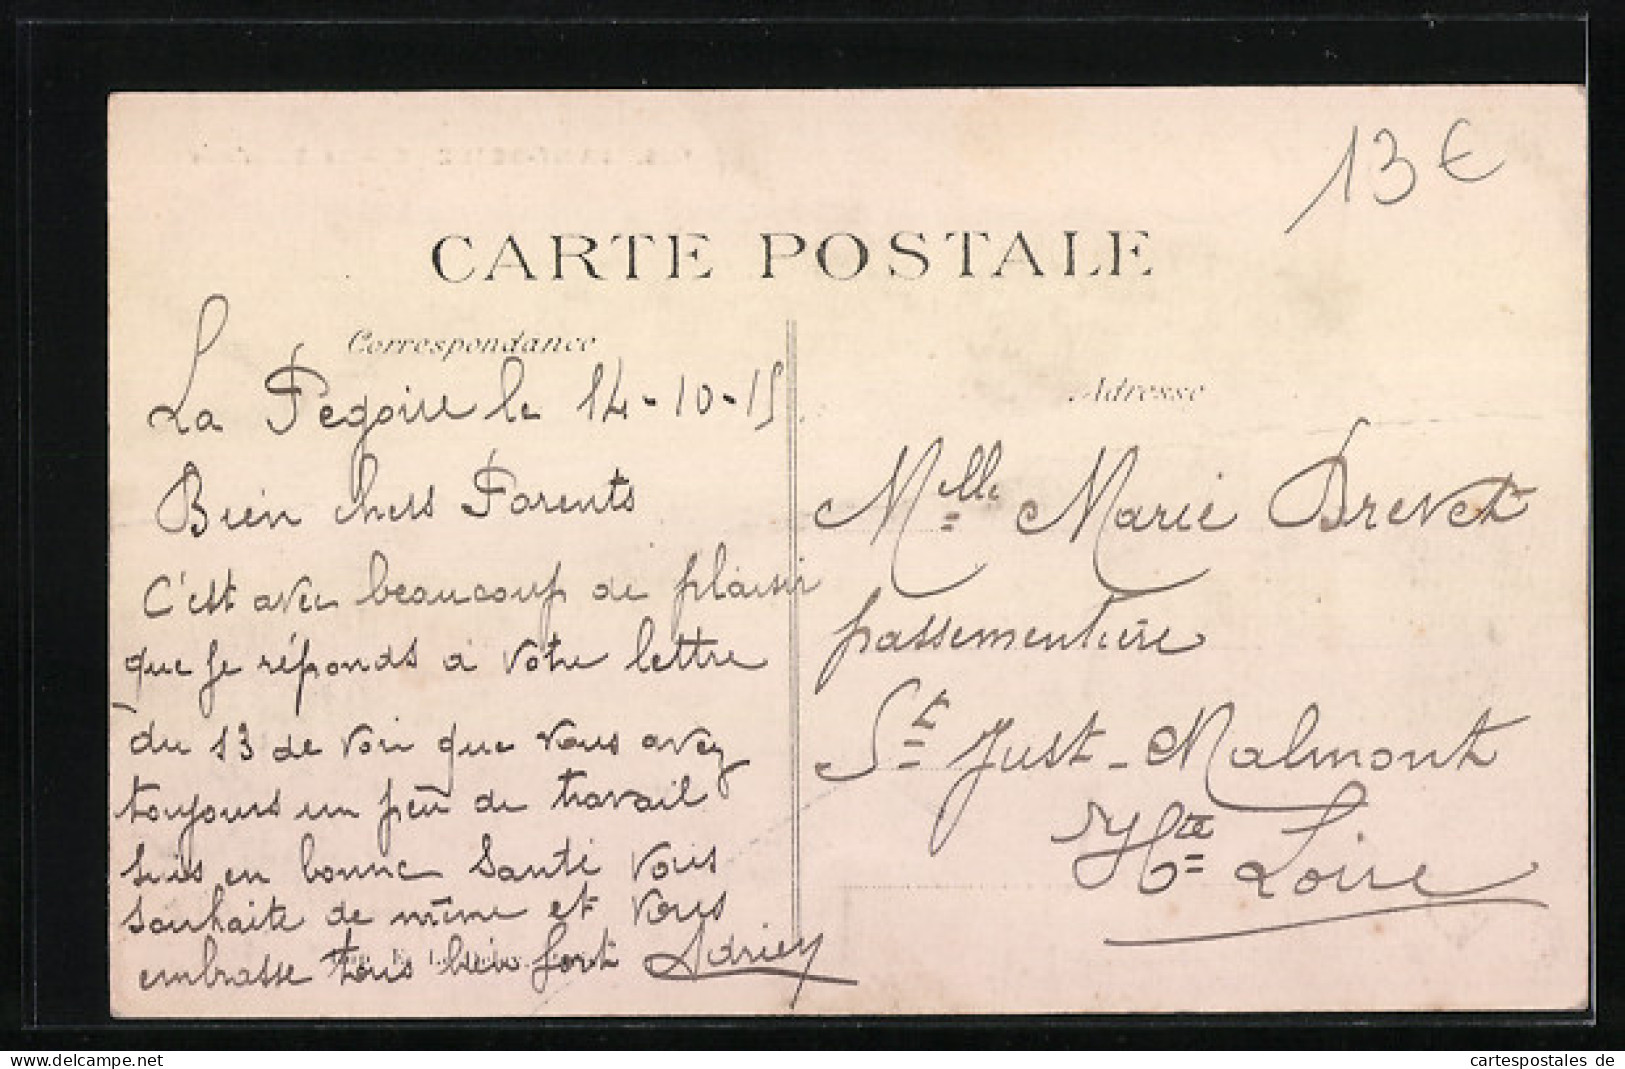 13 €
CARTE POSTALE
Correspondance
La Pegoire le 14-10-15
Bien chers Parents
C'est avec beaucoup de plaisir
que je réponds a votre lettre
du 13 de voir que vous avez
toujours un peu de travail
suis en bonne Santé vous
souhaite de même et vous
embrasse tous bien fort Adrien
Adresse
Mlle Marie Brevet
passementière
St Just-Malmont
Hte Loire
cartespostales de